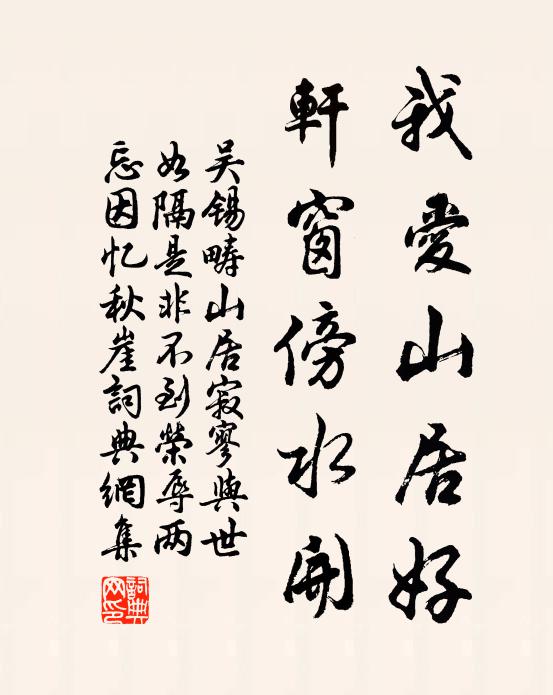 我愛山居好
軒窗傍水開
吴錫疇山居寂寥與世
如隔是非不到榮辱两
忘因忆秋崖詞典網集
詞典
网印